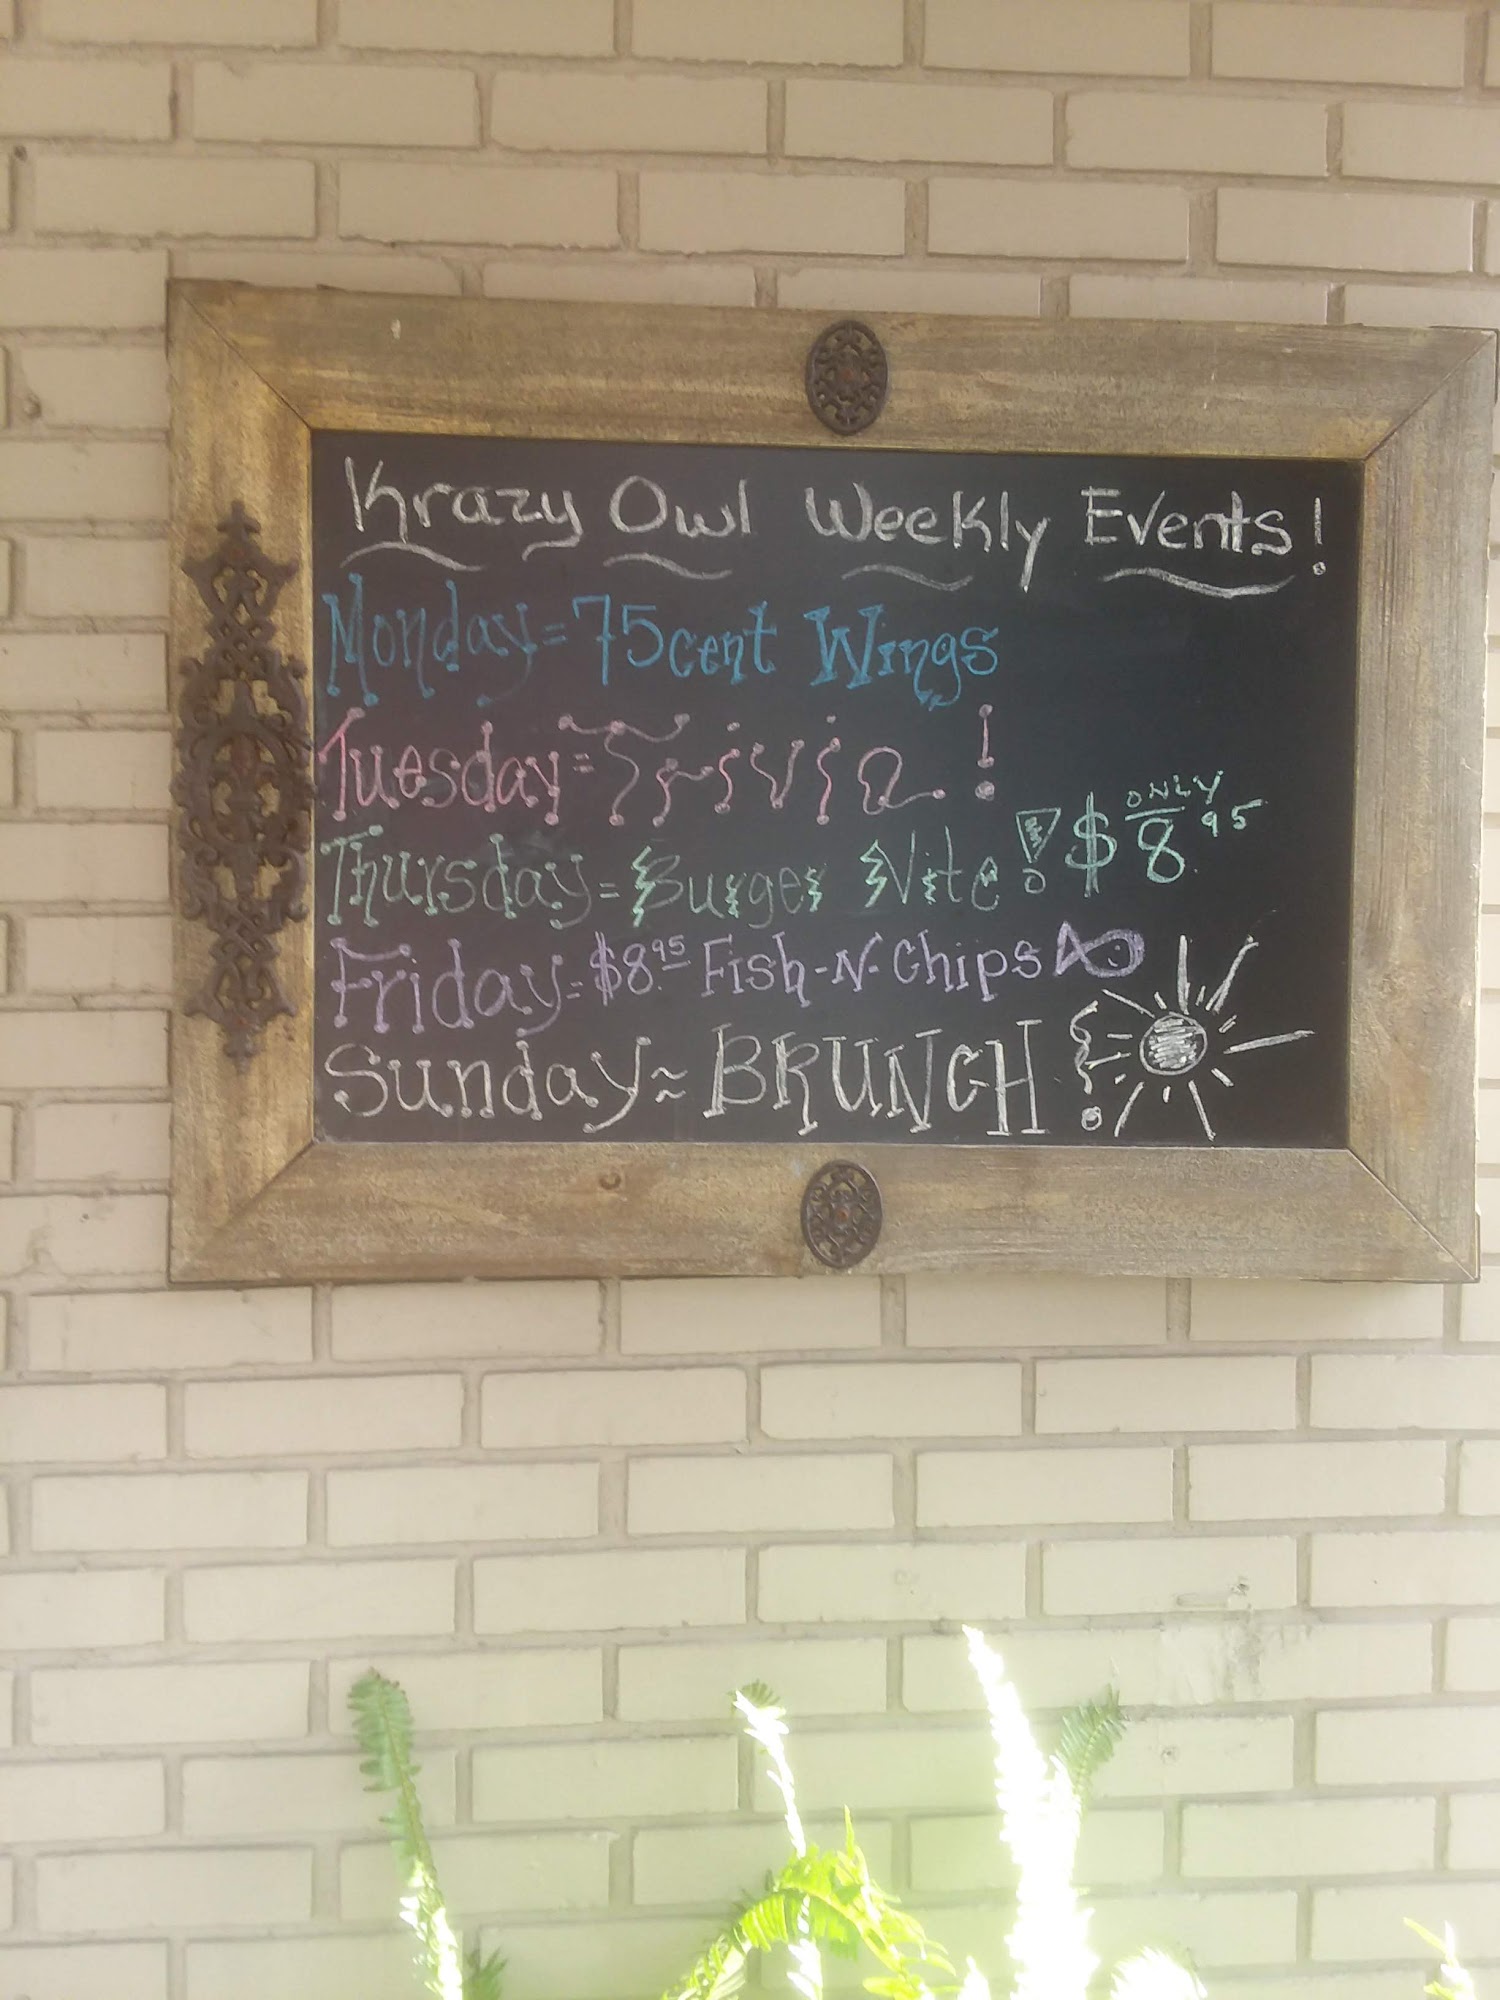 Krazy Owl Weekly Events!
Monday=75cent Wings
Tuesday=Trivia!
Thursday=Burger Nite! $8.95 ONLY
Friday=$8.95 Fish-N-Chips
Sunday~BRUNCH!